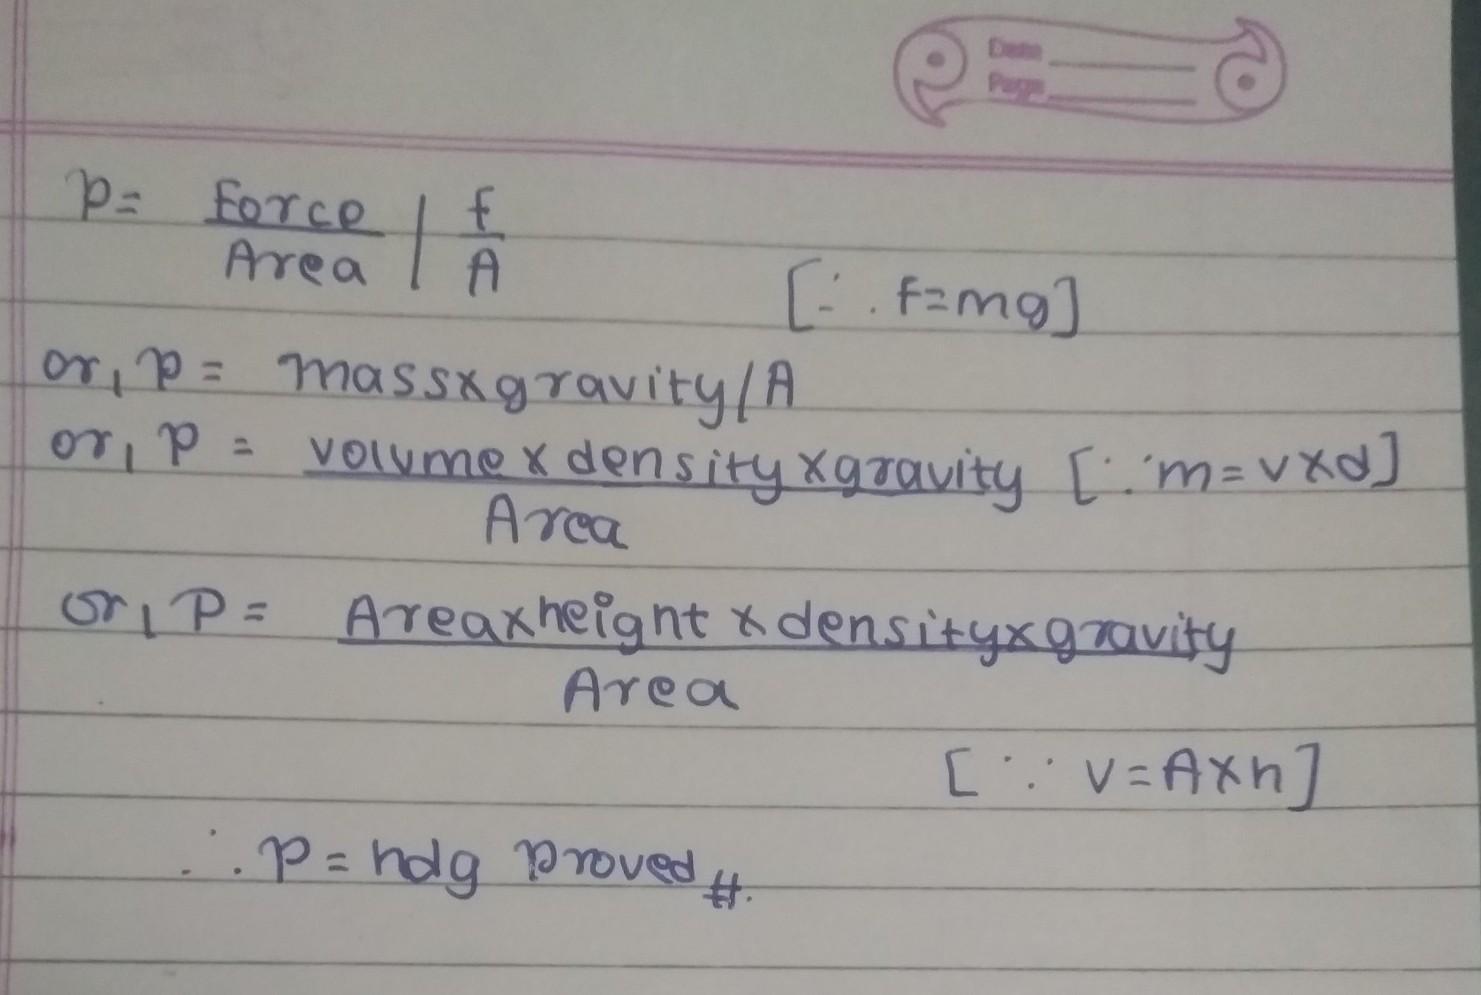 Date
Page
P = Force / Area | f / A
[∵ f=mg]
or, P = mass×gravity/A
or, P = volume × density × gravity / Area [∵ m = v×d]
or, P = Area×height × density×gravity / Area
[∵ v = A×h]
∴ P = hdg proved #.